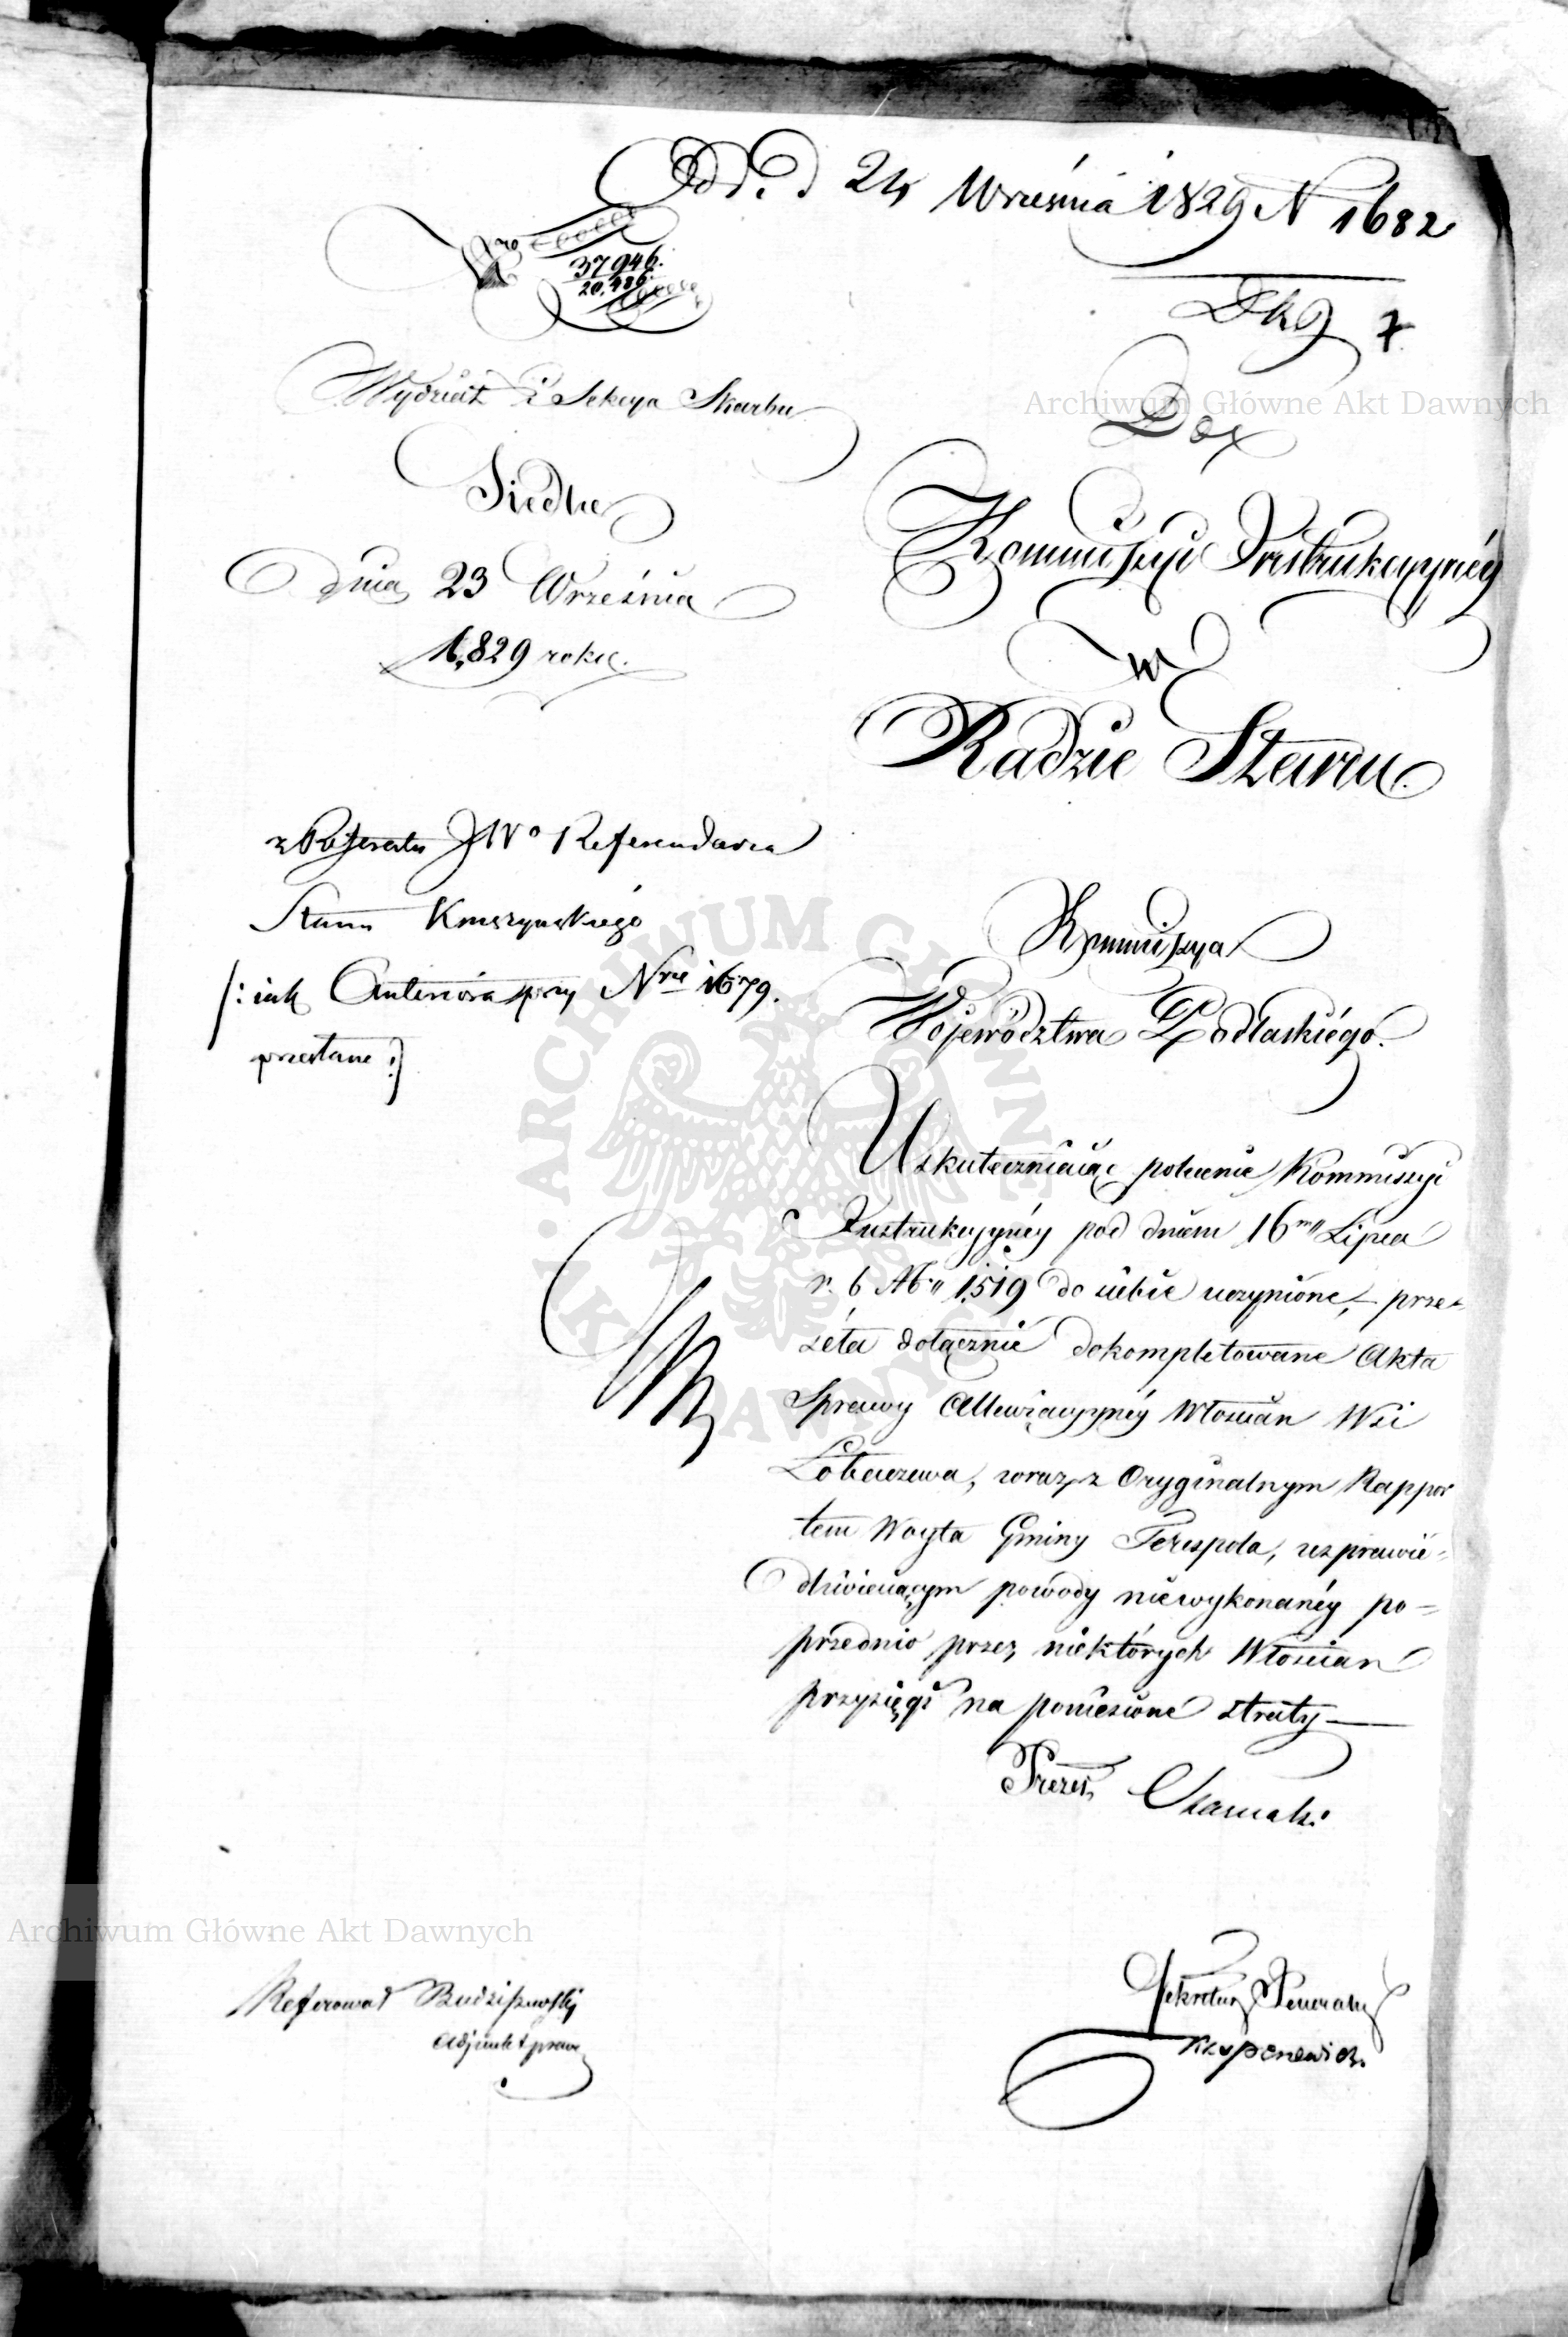 Odd. d 24 Września 1829 N 1682
Nro 37946.
20,486.
7
Wydział i Sekcya Skarbu
Siedlce
Dnia 23 Września
1,829 roku.
Do
Kommissyi Instrukcyynéy
w
Radzie Stanu
z Referatu JWo Referendarza
Stanu Kruszyńskiego
/: iak Anteriora przy Nrze 1679.
przesłane :/
Kommissya
Województwa Podlaskiégo.
Uskuteczniaiąc polecenie Kommissyi
Instrukcyynéy pod dniem 16m" Lipca
r. b Nb" 1,519 do siebie uczynione, – prze-
séła dołącznie dokompletowane Akta
Sprawy Allewiacyynéy Włościan Wsi
Łobaczewa, wraz z Oryginalnym Rappor
tem Woyta Gminy Terespola, usprawie-
dliwiaiącym powody niewykonanéy po-
przednio przez niektórych Włościan
przysięgi na poniesione straty —
Prezes
Referował Budziszewski
Adjunkt prawn
Sekretarz Generalny
Archiwum Główne Akt Dawnych
Archiwum Główne Akt Dawnych
ARCHIWUM GŁÓWNE AKT DAWNYCH